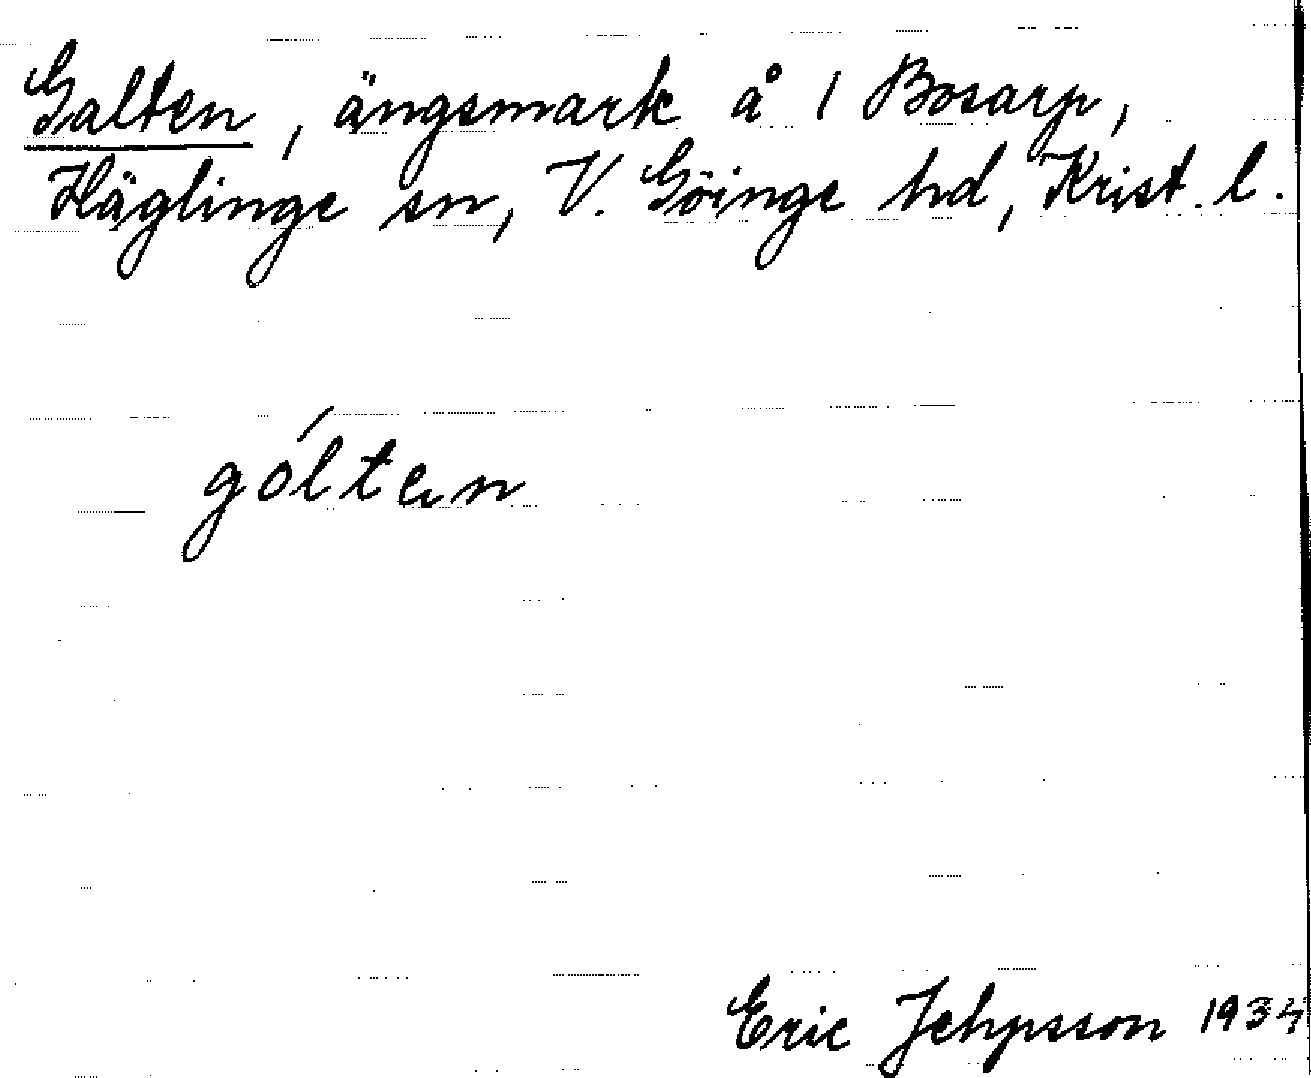 Galten, ängsmark å 1 Bosarp,
Häglinge sn, V. Göinge hd, Krist. l.
góltεn
Eric Jehpsson 1934